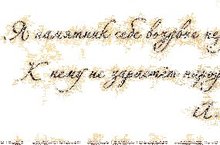 Я памятник себе воздвиг не
К нему не зарастет наро
А.